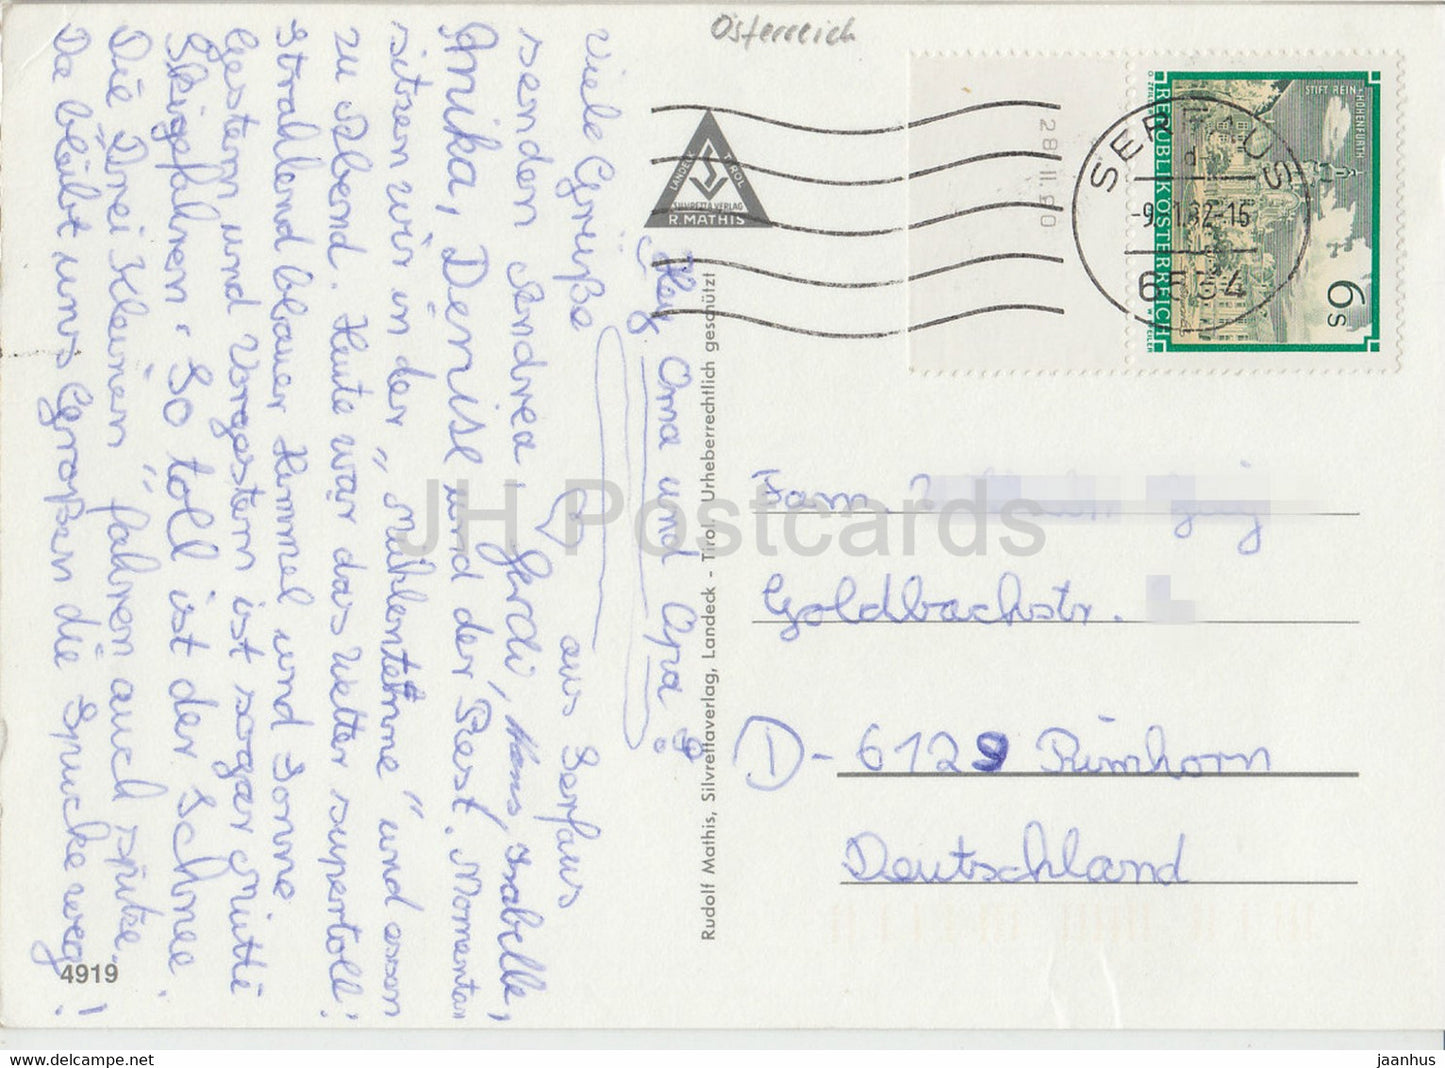 Österreich
Hey Oma und Opa !
Viele Grüße aus Serfaus
senden Andrea, Gerdi, Hans, Isabelle,
Annika, Denise und der Rest. Momentan
sitzen wir in der "Mühlentenne" und essen
zu Abend. Heute war das Wetter supertoll!
Strahlend blauer Himmel und Sonne
Gestern und Vorgestern ist sogar Gnitti
Skigefahren. So toll ist der Schnee.
Die "Drei Kleinen" fahren auch spitze.
Da bleibt uns Großen die Spucke weg!
4919
Rudolf Mathis, Silvrettaverlag, Landeck - Tirol. Urheberrechtlich geschützt
LANDECK TIROL
SILVRETTA VERLAG
R. MATHIS
28.II.90
SERFAUS
6534
REPUBLIK ÖSTERREICH
STIFT REIN-HOHENFURTH
6 S
Fam.
Goldbachstr.
D-6129 Rimhorn
Deutschland
JH Postcards
www.delcampe.net
jaanhus